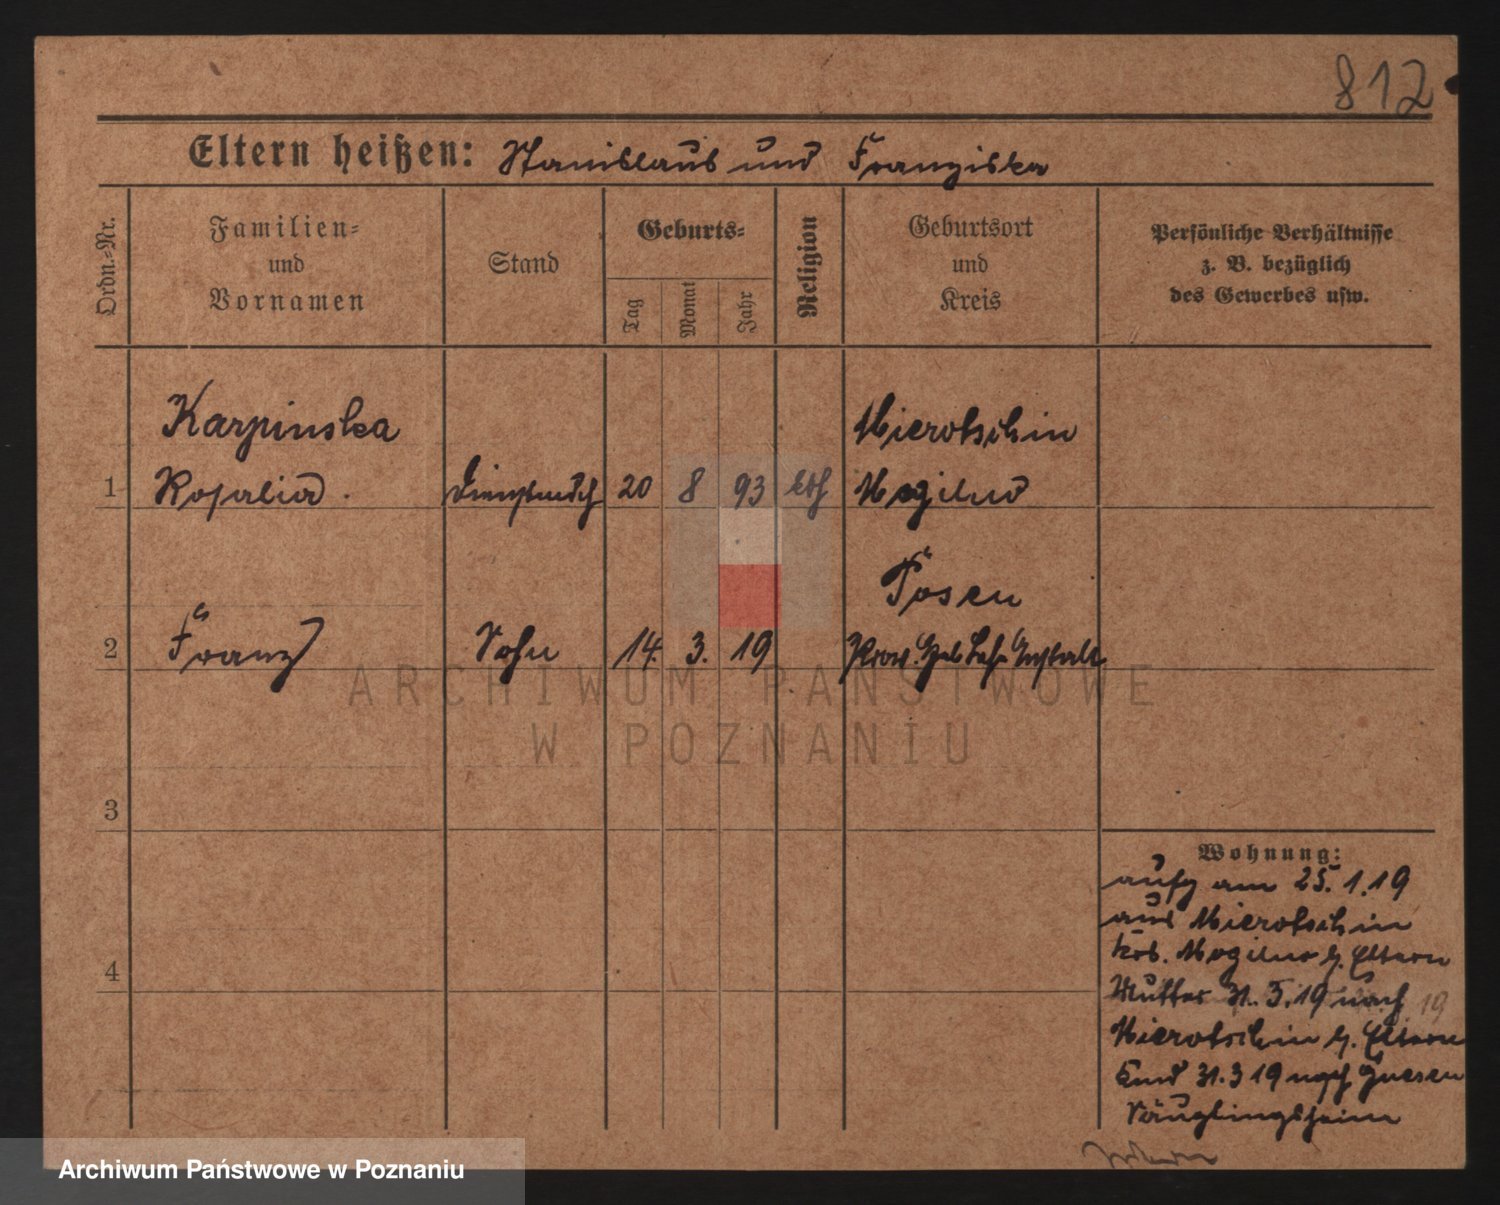 812
Eltern heißen: Stanislaus und Franziska
Ordn.-Nr.
Familien-
und
Vornamen
Stand
Geburts-
Tag
Monat
Jahr
Religion
Geburtsort
und
Kreis
Persönliche Verhältnisse
z. B. bezüglich
des Gewerbes usw.
Karpinska
Mierotschin
1 Rosalia Dienstmdch 20 8 93 kth Mogilno
Posen
2 Franz Sohn 14. 3. 19 Prov. Heb Lehr Anstalt
ARCHIWUM PAŃSTWOWE
W POZNANIU
3
4
Wohnung:
aufg am 25.1.19
aus Mierotschin
Krs. Mogilno z. Eltern
Mutter 31.3.19 nach 19
Mierotschin z. Eltern
Kind 31.3 19 nach Gnesen
Säuglingsheim
Archiwum Państwowe w Poznaniu